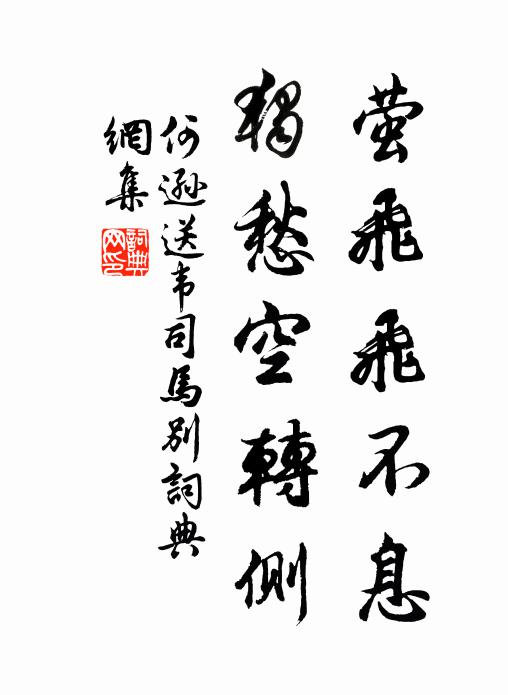 萤飛飛不息
獨愁空轉側
何遜送韦司馬別詞典
網集
詞典
网印